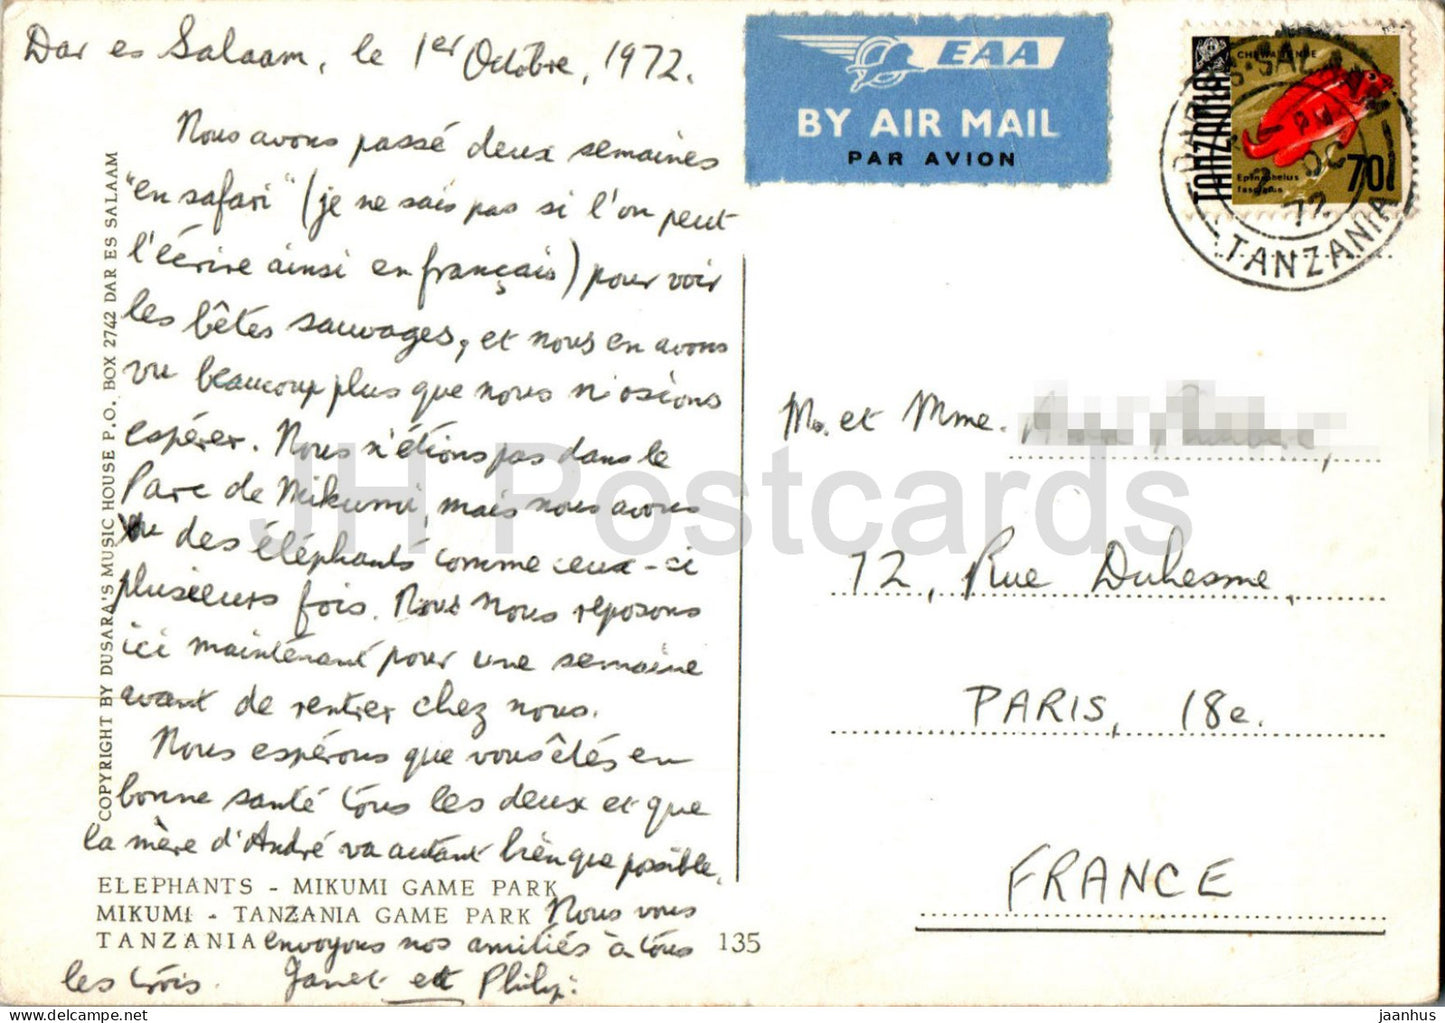 Dar es Salaam, le 1er Octobre, 1972.
Nous avons passé deux semaines
"en safari" (je ne sais pas si l'on peut
l'écrire ainsi en français) pour voir
les bêtes sauvages, et nous en avons
vu beaucoup plus que nous n'osions
espérer. Nous n'étions pas dans le
Parc de Mikumi, mais nous avons
vu des éléphants comme ceux-ci
plusieurs fois. Nous nous reposons
ici maintenant pour une semaine
avant de rentrer chez nous.
Nous espérons que vous êtes en
bonne santé tous les deux et que
la mère d'André va autant bien que possible.
Nous vous
envoyons nos amitiés à tous
les trois. Janet et Philip.
COPYRIGHT BY DUSARA'S MUSIC HOUSE P.O. BOX 2742 DAR ES SALAAM
ELEPHANTS - MIKUMI GAME PARK
MIKUMI - TANZANIA GAME PARK
TANZANIA
135
EAA
BY AIR MAIL
PAR AVION
TANZANIA
Epinephelus
fasciatus
70
DAR-ES-SALAAM
OC
72
TANZANIA
M. et Mme.
72, Rue Duhesme,
PARIS, 18e.
FRANCE
JH Postcards
jaanhus